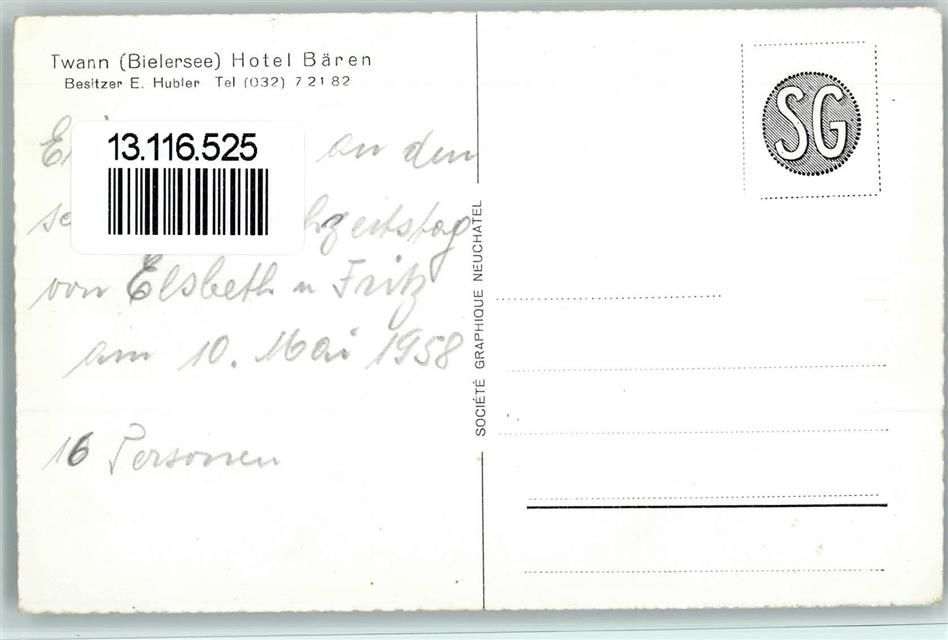 Twann (Bielersee) Hotel Bären
Besitzer E. Hubler Tel (032) 7 21 82
13.116.525
an den
von Elsbeth u Fritz
am 10. Mai 1958
16 Personen
SOCIÉTÉ GRAPHIQUE NEUCHATEL
SG